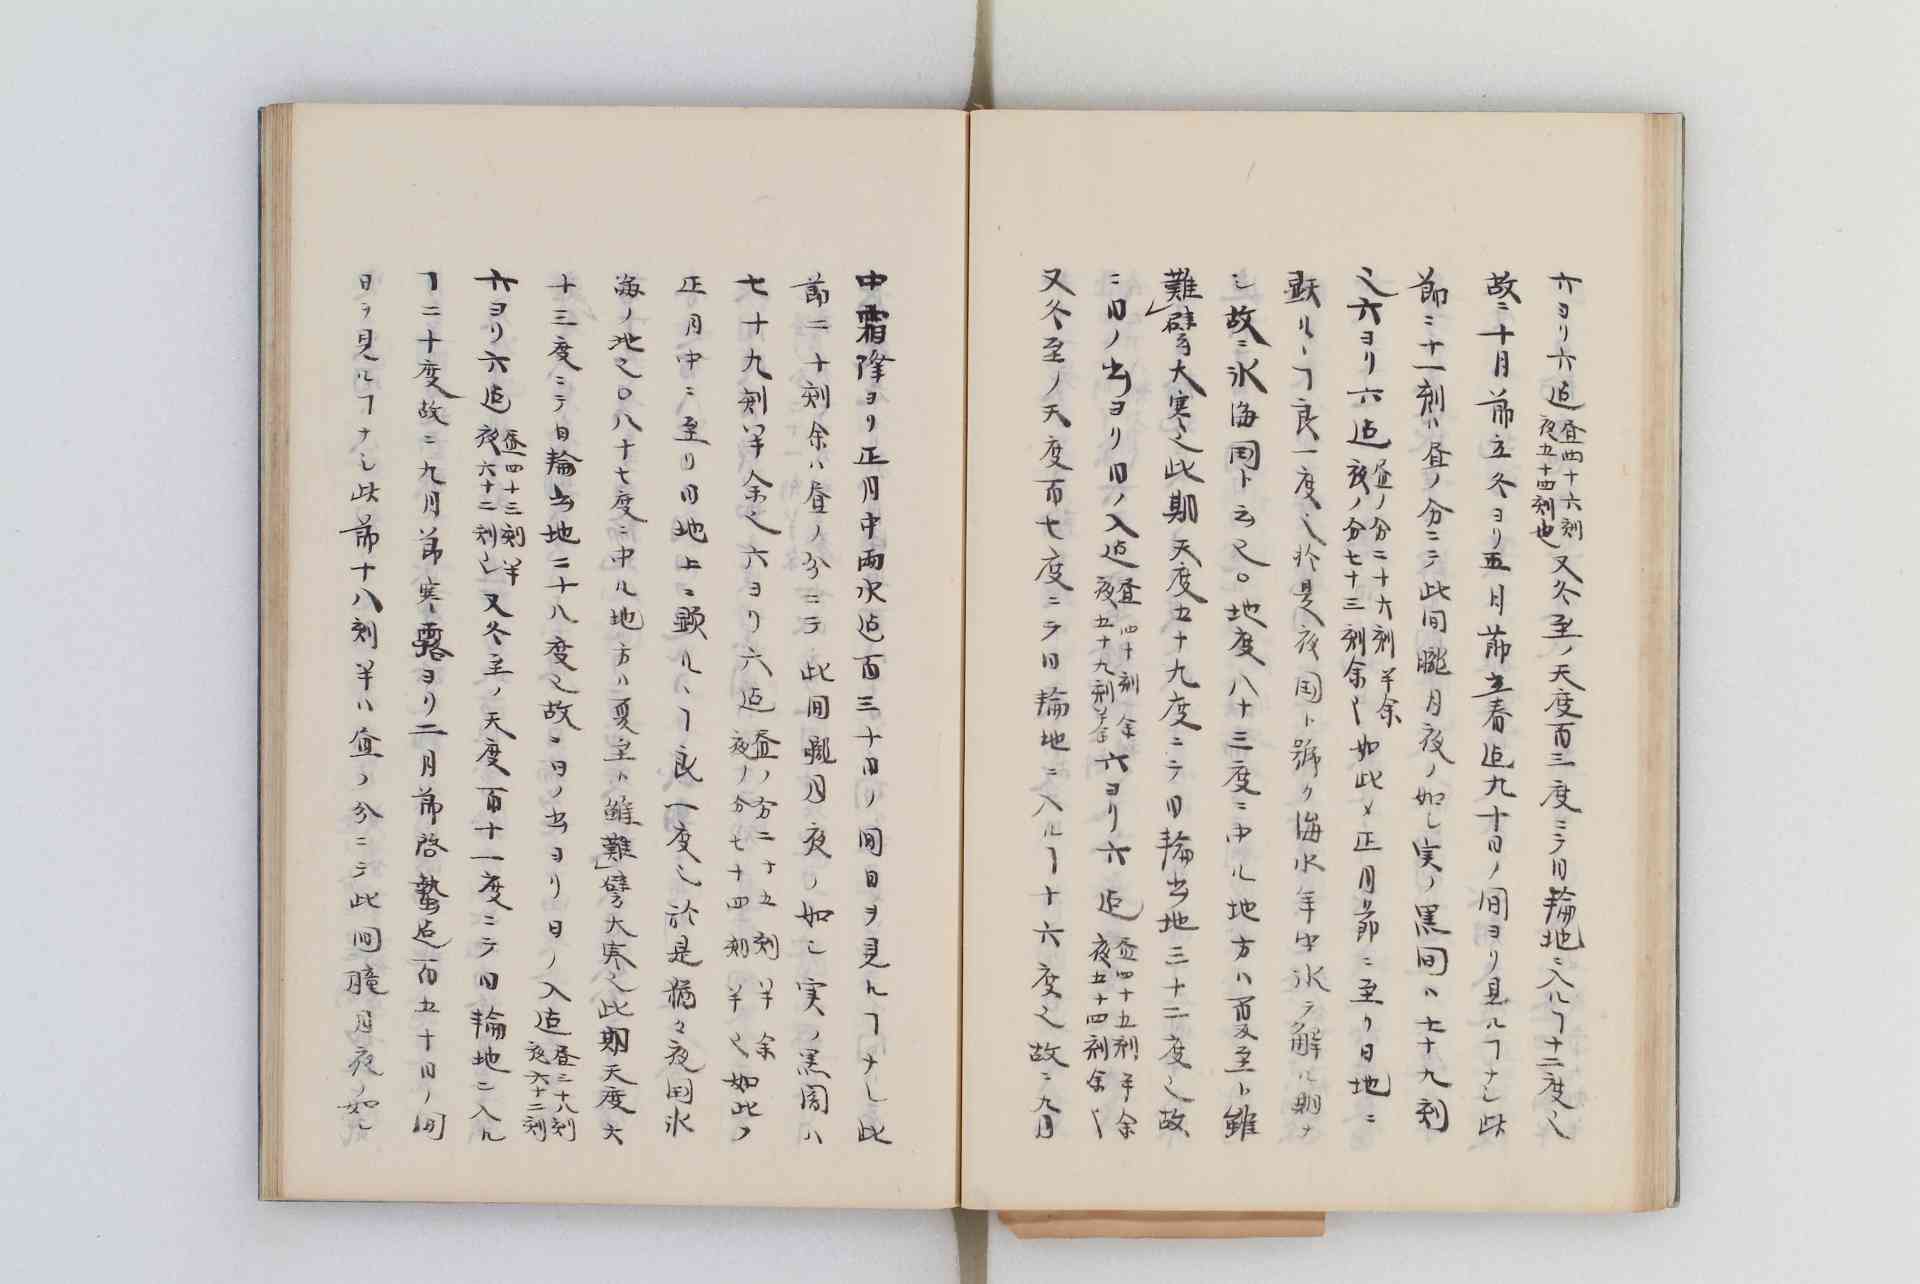 六ヨリ六迠昼四十六刻夜五十四刻也又冬至ノ天度百三度ニテ日輪地ニ入ルヿ十二度也
故ニ十月節立冬ヨリ正月節立春迠九十日ノ間日ヲ見ルヿナシ此
節二十一刻ハ昼ノ分ニテ此間朧月夜ノ如し実ノ黒闇ハ七十九刻
也六ヨリ六迠昼ノ分二十六刻半余夜ノ分七十三刻余也如此〆正月節ニ至リ日地ニ
顕ルヽヿ良一度也於是夜国ト號ク海水年中氷ヲ解ル期ナ
シ故ニ氷海国ト云也○地度八十三度ニ中ル地方ハ夏至ト雖
難譬大寒也此期天度五十九度ニテ日輪出地三十二度也故
ニ日ノ出ヨリ日ノ入迠昼四十刻余夜五十九刻半余六ヨリ六迠昼四十五刻半余夜五十四刻余也
又冬至ノ天度百七度ニテ日輪地ニ入ルヿ十六度也故ニ九月
中霜降ヨリ正月中雨水迠百三十日ノ間日ヲ見ルヿナし此
節二十刻余ハ昼ノ分ニテ此間朧月夜ノ如し実ノ黒闇ハ
七十九刻半余也六ヨリ六迠昼ノ分二十五刻半余夜ノ分七十四刻半也如此ノ
正月中ニ至リ日地上ニ顕ルヽヿ良一度也於是猶々夜国氷
海ノ地也○八十七度ニ中ル地方ハ夏至ト雖難譬大寒也此期天度六
十三度ニテ日輪出地二十八度也故ニ日ノ出ヨリ日ノ入迠昼三十八刻夜六十二刻
六ヨリ六迠昼四十三刻半夜六十二刻也又冬至ノ天度百十一度ニテ日輪地ニ入ル
ヿ二十度故ニ九月節寒露ヨリ二月節啓蟄迠百五十日ノ間
日ヲ見ルヿナし此節十八刻半ハ昼ノ分ニテ此間朧月夜ノ如し